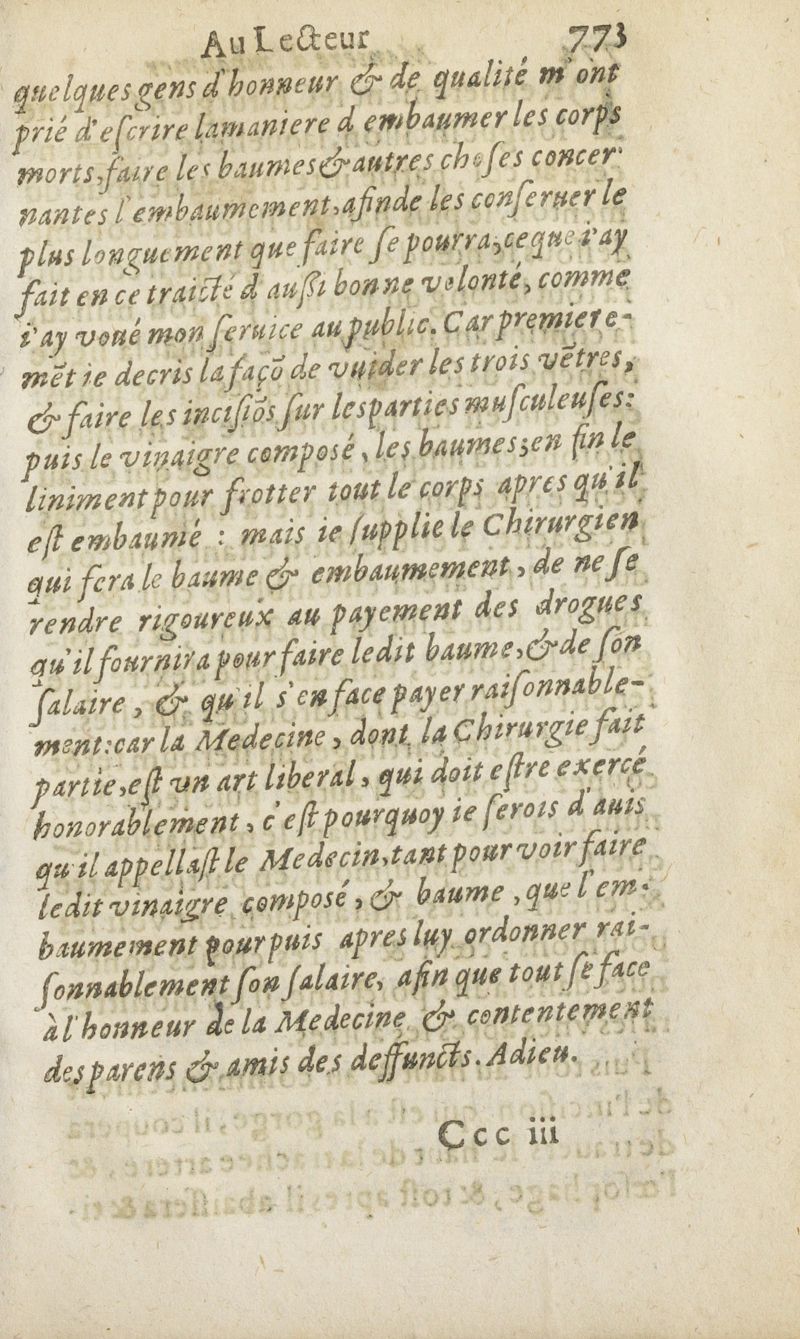 Au Lecteur 773
quelques gens d'honneur & de qualité m'ont
prié d'eſcrire la maniere d'embaumer les corps
morts, faire les baumes & autres choſes concer-
nantes l'embaumement, afin de les conſeruer le
plus longuement que faire ſe pourra, ce que i'ay
fait en ce traicté d'auſſi bonne volonté, comme
i'ay voué mon ſeruice au public. Car premiere-
mēt ie decris la façō de vuider les trois vētres,
& faire les inciſiōs ſur les parties muſculeuſes:
puis le vinaigre composé, les baumes; en fin le
liniment pour frotter tout le corps apres qu'il
eſt embaumé : mais ie ſupplie le Chirurgien
qui fera le baume & embaumement, de ne ſe
rendre rigoureux au payement des drogues
qu'il fournira pour faire ledit baume, & de ſon
ſalaire, & qu'il s'en face payer raiſonnable-
ment: car la Medecine, dont la Chirurgie fait
partie, eſt vn art liberal, qui doit eſtre exercé
honorablement, c'eſt pourquoy ie ſerois d'auis
qu'il appellaſt le Medecin, tant pour voir faire
ledit vinaigre composé, & baume, que l'em-
baumement pour puis apres luy ordonner rai-
ſonnablement ſon ſalaire, afin que tout ſe face
à l'honneur de la Medecine & contentement
des parens & amis des deffuncts. Adieu.
Ccc iii